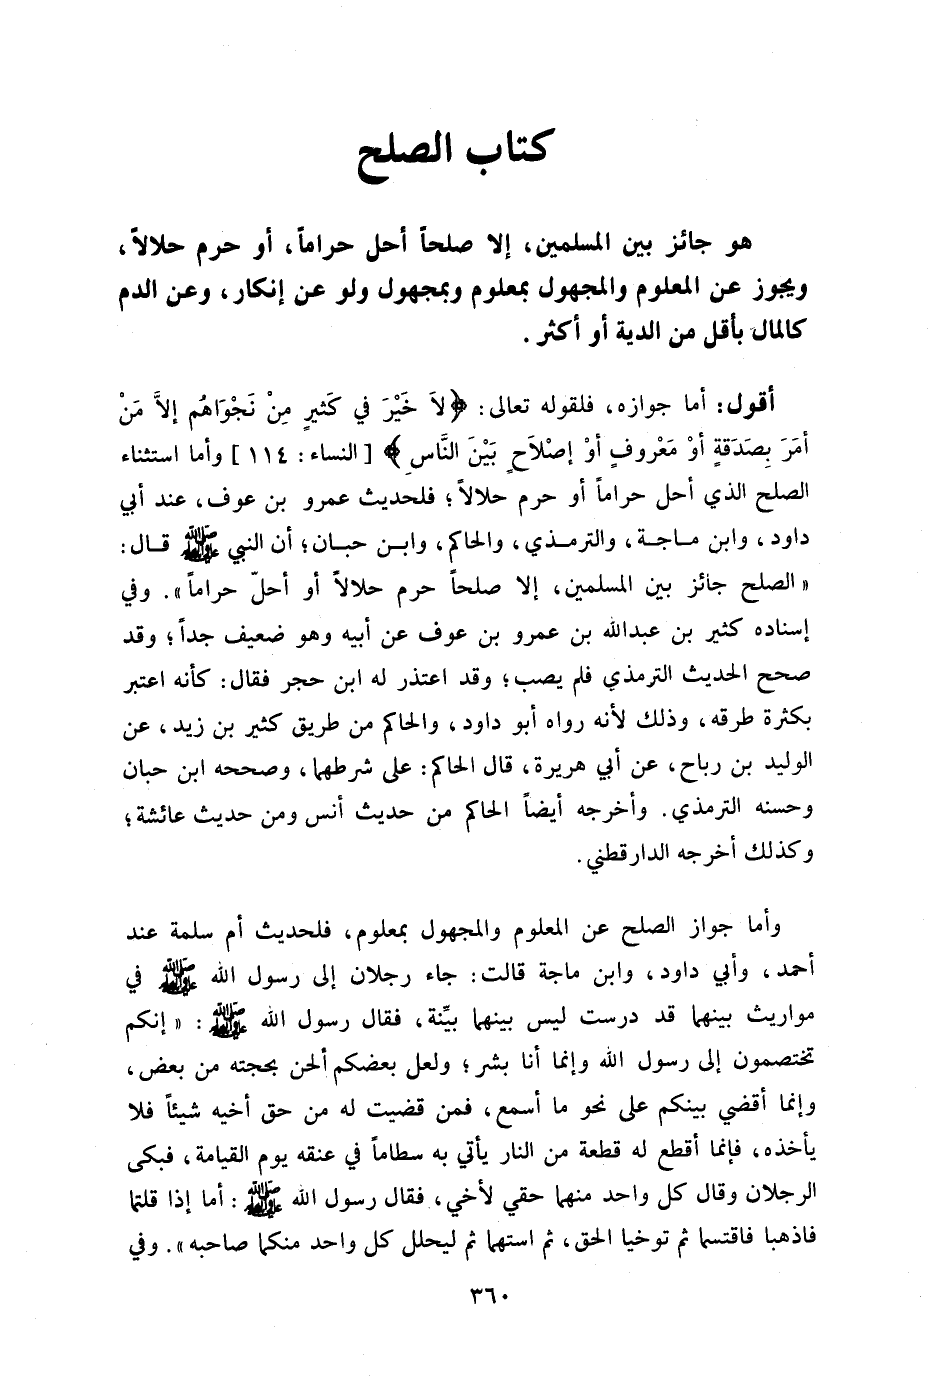 كتاب الصلح
هو جائز بين المسلمين، إلا صلحاً أحل حراماً، أو حرم حلالاً،
ويجوز عن المعلوم والمجهول بمعلوم وبمجهول ولو عن إنكار، وعن الدم
كالمال بأقل من الدية أو أكثر.
أقول: أما جوازه، فلقوله تعالى: ﴿لاَ خَيْرَ في كَثيرٍ مِنْ نَجْوَاهُم إلاَّ مَنْ
أمَرَ بِصَدَقةٍ أوْ مَعْروفٍ أوْ إصْلاَحٍ بَيْنَ النَّاسِ﴾ [النساء: ١١٤] وأما استثناء
الصلح الذي أحل حراماً أو حرم حلالاً؛ فلحديث عمرو بن عوف، عند أبي
داود، وابن ماجة، والترمذي، والحاكم، وابن حبان؛ أن النبي ﷺ قال:
«الصلح جائز بين المسلمين، إلا صلحاً حرم حلالاً أو أحلّ حراماً». وفي
إسناده كثير بن عبدالله بن عمرو بن عوف عن أبيه وهو ضعيف جداً؛ وقد
صحح الحديث الترمذي فلم يصب؛ وقد اعتذر له ابن حجر فقال: كأنه اعتبر
بكثرة طرقه، وذلك لأنه رواه أبو داود، والحاكم من طريق كثير بن زيد، عن
الوليد بن رباح، عن أبي هريرة، قال الحاكم: على شرطهما، وصححه ابن حبان
وحسنه الترمذي. وأخرجه أيضاً الحاكم من حديث أنس ومن حديث عائشة؛
وكذلك أخرجه الدارقطني.
وأما جواز الصلح عن المعلوم والمجهول بمعلوم، فلحديث أم سلمة عند
أحمد، وأبي داود، وابن ماجة قالت: جاء رجلان إلى رسول الله ﷺ في
مواريث بينهما قد درست ليس بينهما بيِّنة، فقال رسول الله ﷺ: «إنكم
تختصمون إلى رسول الله وإنما أنا بشر؛ ولعل بعضكم ألحن بحجته من بعض،
وإنما أقضي بينكم على نحو ما أسمع، فمن قضيت له من حق أخيه شيئاً فلا
يأخذه، فإنما أقطع له قطعة من النار يأتي به سطاماً في عنقه يوم القيامة، فبكى
الرجلان وقال كل واحد منهما حقي لأخي، فقال رسول الله ﷺ: أما إذا قلتما
فاذهبا فاقتسما ثم توخيا الحق، ثم استهما ثم ليحلل كل واحد منكما صاحبه». وفي
٣٦٠